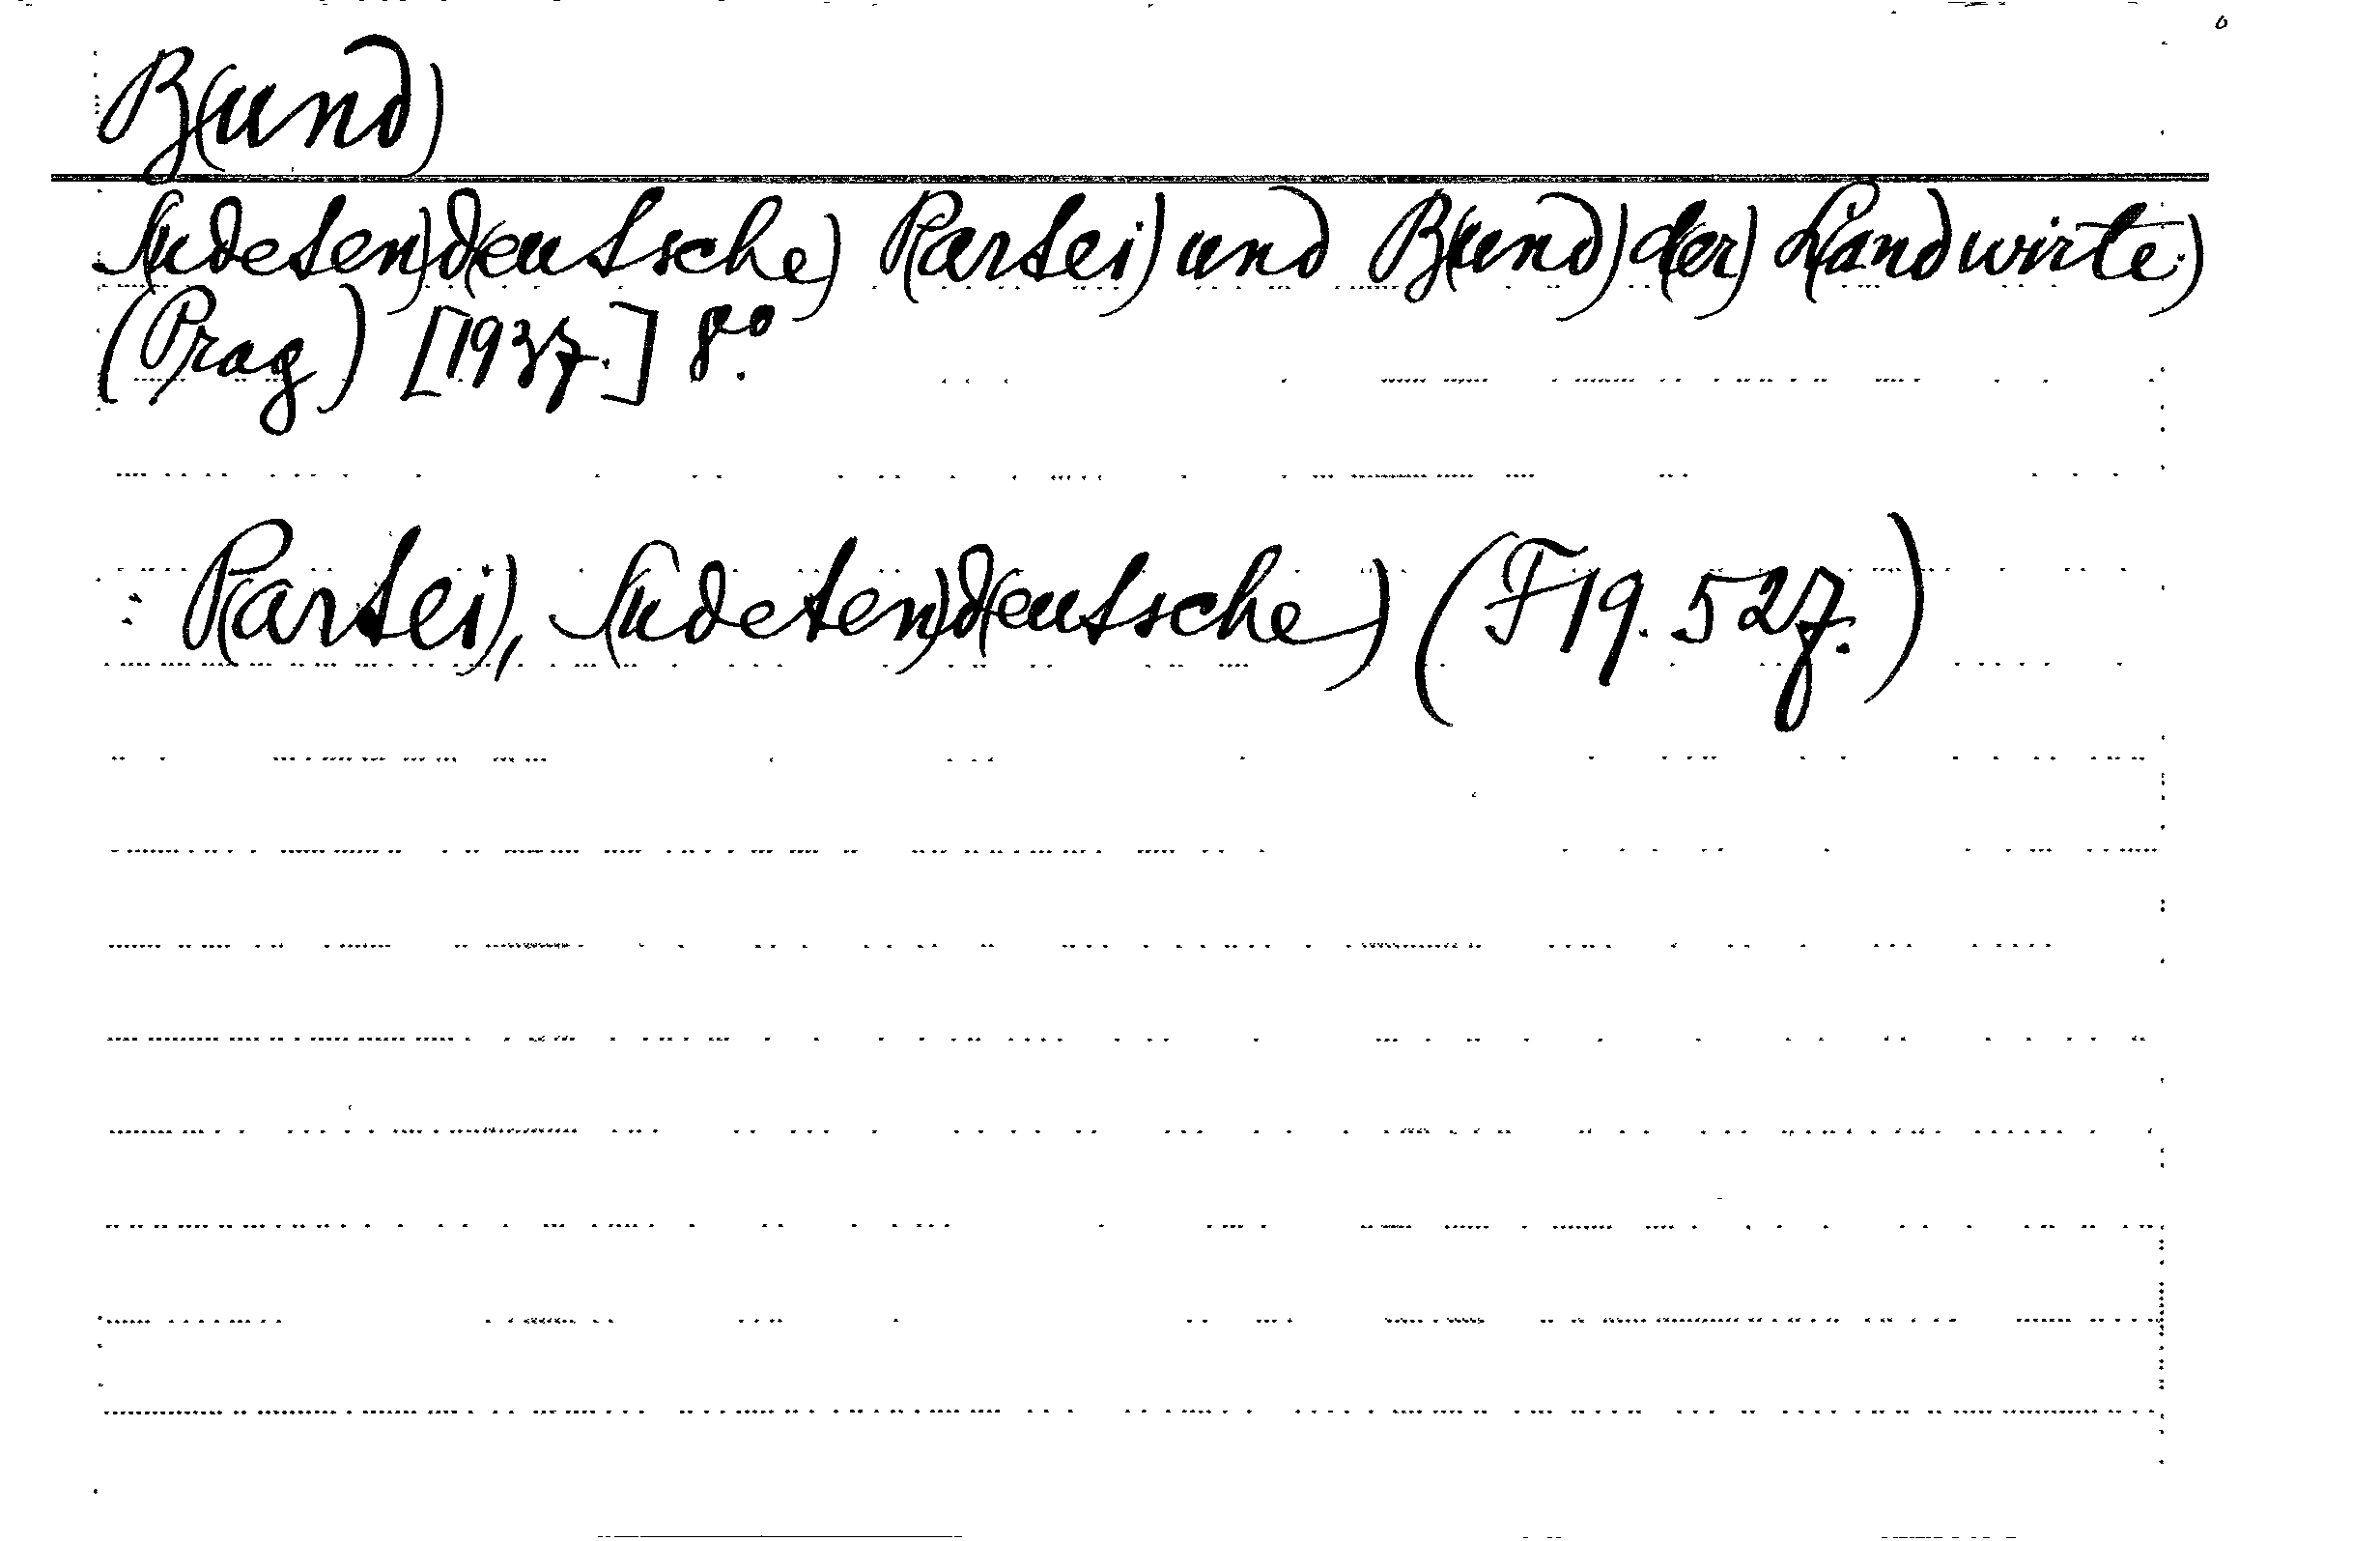 B(und)
S(udeten)d(eutsche) P(artei) und B(und) d(er) L(andwirte.)
(Prag) [1937.] 8°.
: P(artei), S(udeten)d(eutsche) (F19.527.)